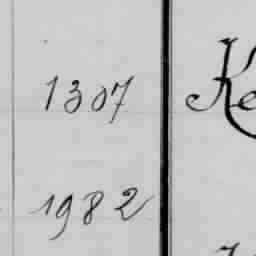 1307 Ke
1982